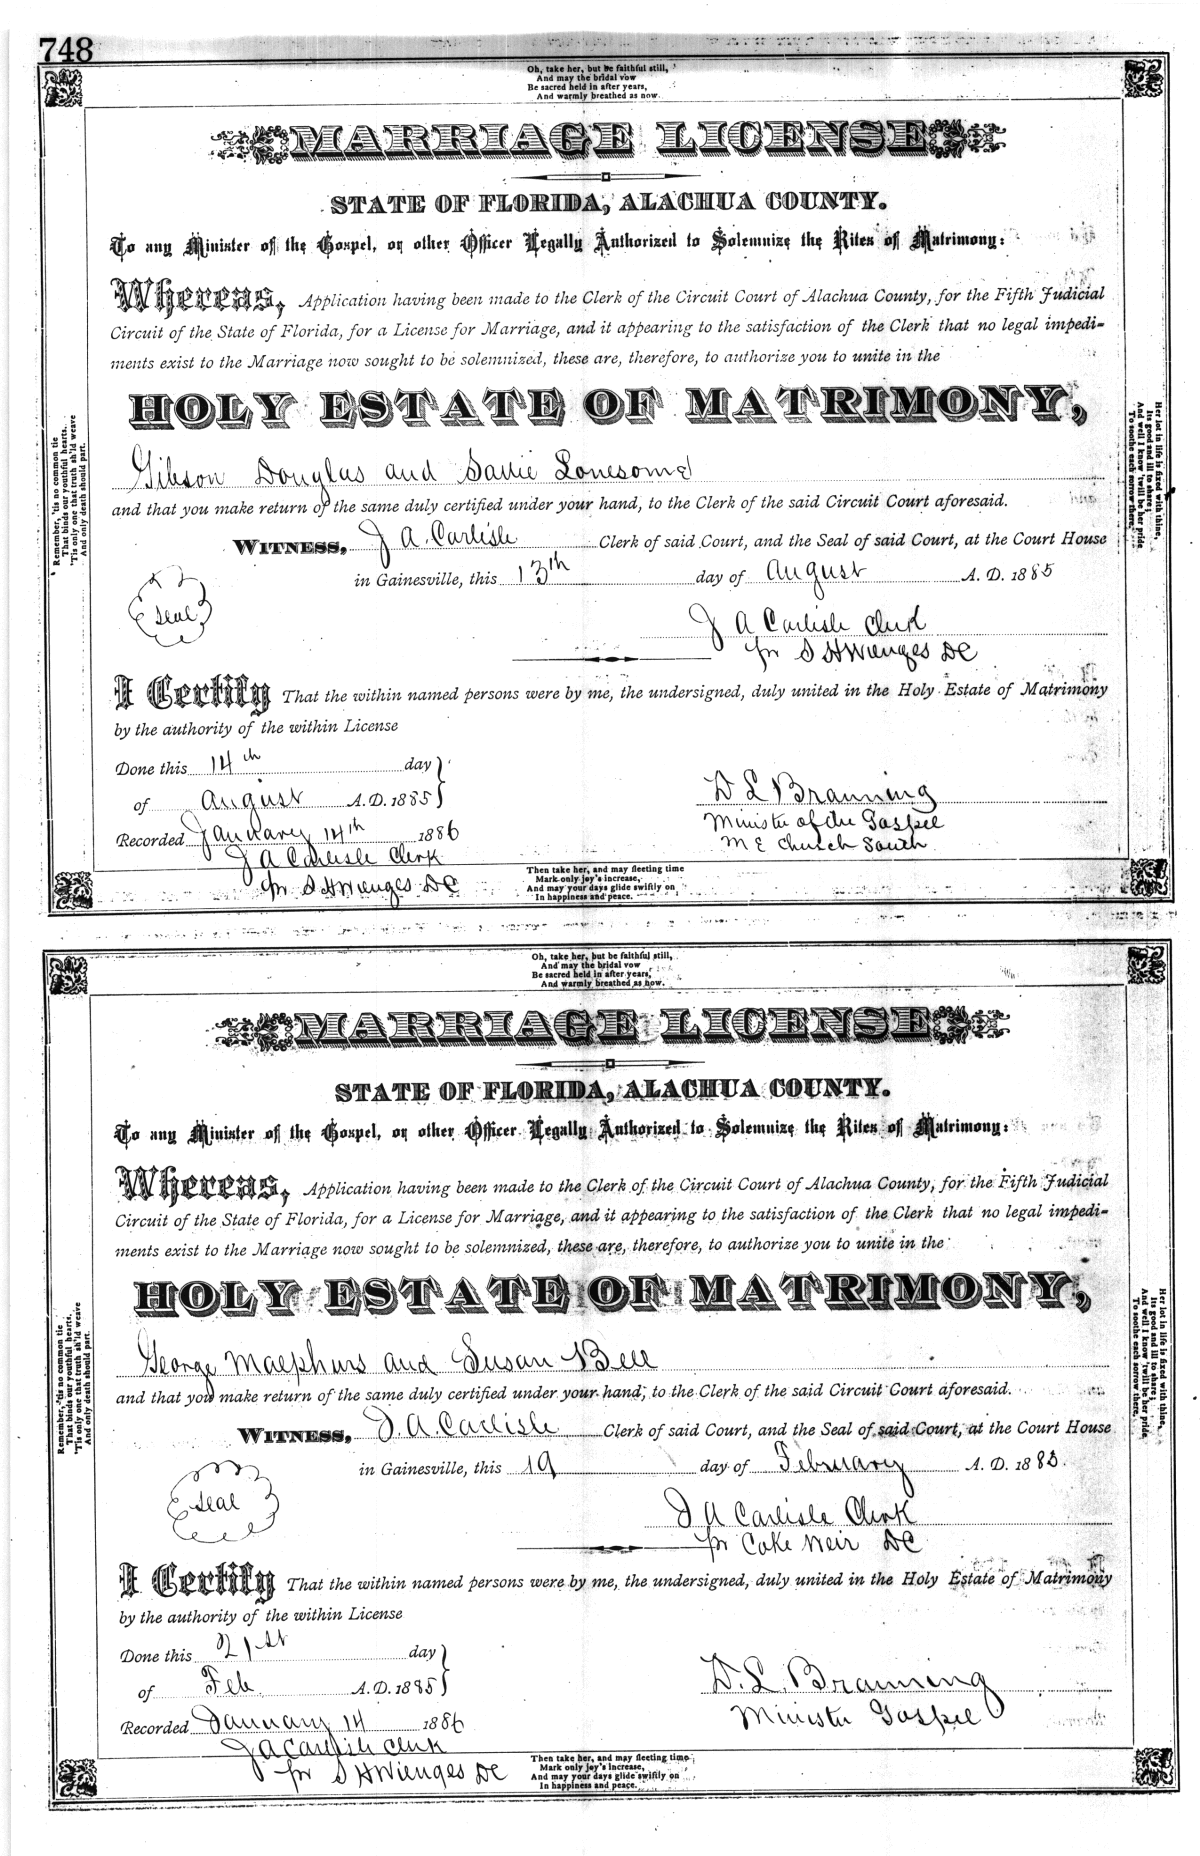 748
Oh, take her, but be faithful still,
And may the bridal vow
Be sacred held in after years,
And warmly breathed as now.
MARRIAGE LICENSE
STATE OF FLORIDA, ALACHUA COUNTY.
To any Minister of the Gospel, or other Officer Legally Authorized to Solemnize the Rites of Matrimony:
Whereas, Application having been made to the Clerk of the Circuit Court of Alachua County, for the Fifth Judicial
Circuit of the State of Florida, for a License for Marriage, and it appearing to the satisfaction of the Clerk that no legal impedi-
ments exist to the Marriage now sought to be solemnized, these are, therefore, to authorize you to unite in the
HOLY ESTATE OF MATRIMONY,
Gibson Douglas and Sallie Lonesome
and that you make return of the same duly certified under your hand, to the Clerk of the said Circuit Court aforesaid.
WITNESS, J A. Carlisle Clerk of said Court, and the Seal of said Court, at the Court House
in Gainesville, this 13th day of August A. D. 1885
Seal
J A Carlisle Clerk
pr S H Wienges DC
I Certify That the within named persons were by me, the undersigned, duly united in the Holy Estate of Matrimony
by the authority of the within License
Done this 14th day
of August A.D. 1885
D L Branning
Minister of the Gospel
M E Church South
Recorded January 14th 1886
J A Carlisle Clerk
pr S H Wienges DC
Remember, 'tis no common tie
That binds our youthful hearts,
'Tis only one that truth sh'ld weave
And only death should part.
Her lot in life is fixed with thine,
Its good and ill to share;
And well I know 'twill be her pride
To soothe each sorrow there.
Then take her, and may fleeting time
Mark only joy's increase,
And may your days glide swiftly on
In happiness and peace.
Oh, take her, but be faithful still,
And may the bridal vow
Be sacred held in after years,
And warmly breathed as now.
MARRIAGE LICENSE
STATE OF FLORIDA, ALACHUA COUNTY.
To any Minister of the Gospel, or other Officer Legally Authorized to Solemnize the Rites of Matrimony:
Whereas, Application having been made to the Clerk of the Circuit Court of Alachua County, for the Fifth Judicial
Circuit of the State of Florida, for a License for Marriage, and it appearing to the satisfaction of the Clerk that no legal impedi-
ments exist to the Marriage now sought to be solemnized, these are, therefore, to authorize you to unite in the
HOLY ESTATE OF MATRIMONY,
George Maephurs and Susan Bell
and that you make return of the same duly certified under your hand, to the Clerk of the said Circuit Court aforesaid.
WITNESS, J. A. Carlisle Clerk of said Court, and the Seal of said Court, at the Court House
in Gainesville, this 19 day of February A. D. 1885.
Seal
J A Carlisle Clerk
pr Coke Weir DC
I Certify That the within named persons were by me, the undersigned, duly united in the Holy Estate of Matrimony
by the authority of the within License
Done this 21st day
of Feb. A.D. 1885
D. L. Branning
Minister Gospel
Recorded January 14 1886
J A Carlisle Clerk
pr S H Wienges DC
Remember, 'tis no common tie
That binds our youthful hearts,
'Tis only one that truth sh'ld weave
And only death should part.
Her lot in life is fixed with thine,
Its good and ill to share;
And well I know 'twill be her pride
To soothe each sorrow there.
Then take her, and may fleeting time
Mark only joy's increase,
And may your days glide swiftly on
In happiness and peace.